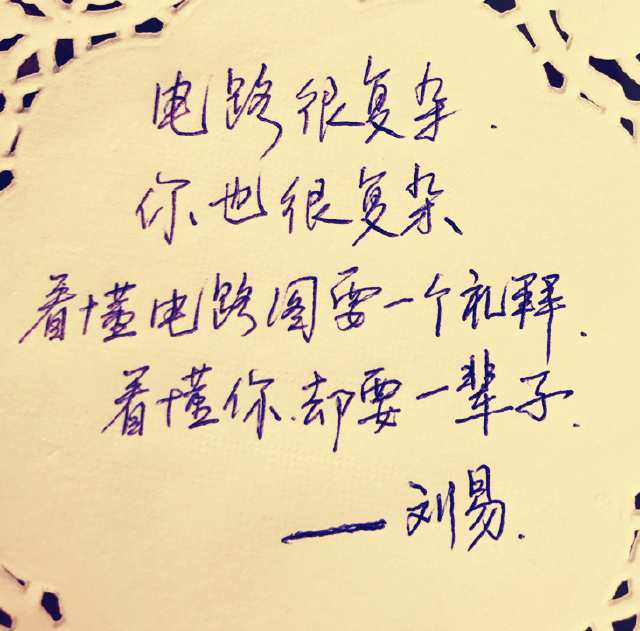 电路很复杂.
你也很复杂
看懂电路图要一个礼拜.
看懂你.却要一辈子.
——刘易.